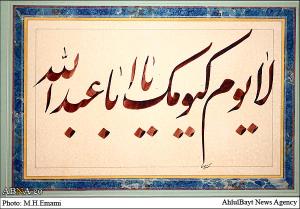 لا یوم کیومک یا ابا عبدالله
ABNA.co
Photo: M.H.Emami
AhlulBayt News Agency